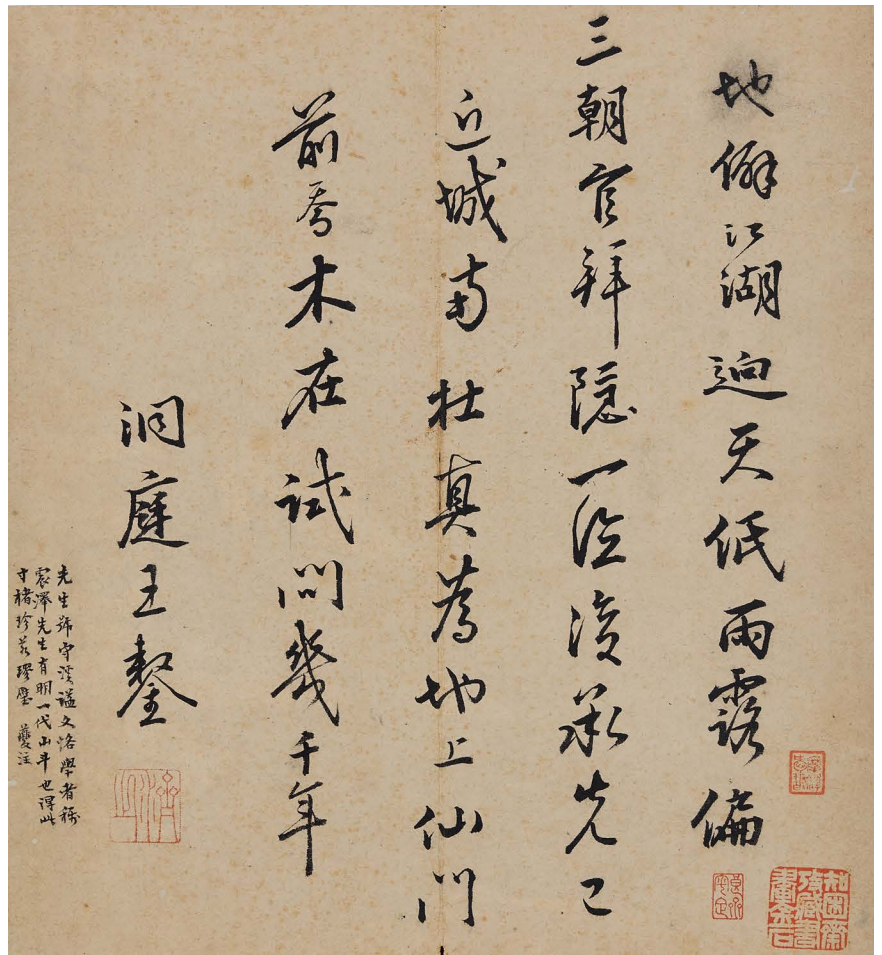 地僻江湖迥天低雨露偏
三朝官拜隱一經後承先已
近城南杜真為地上仙門
前喬木在試問幾千年
洞庭王鏊
先生號守溪謚文恪學者稱
震澤先生有明一代山斗也得此
寸楮珍若璆璧 夔注
濟之